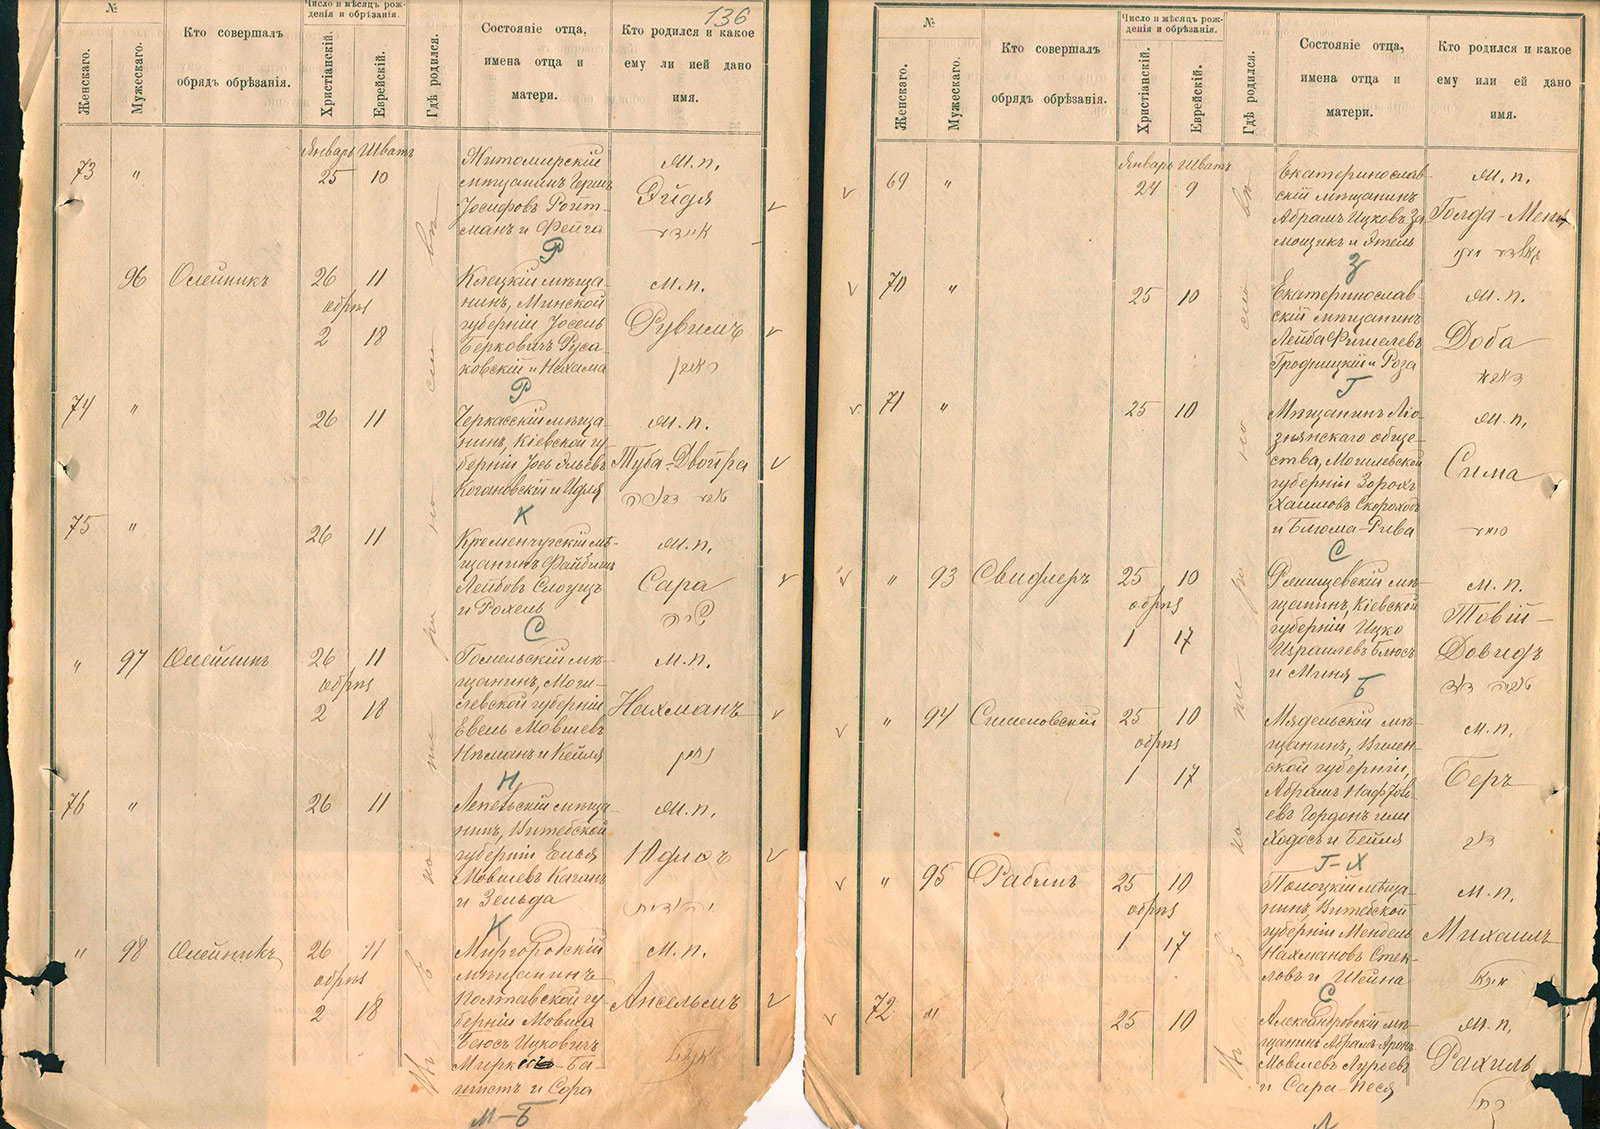 136
№
Женскаго.
Мужескаго.
Кто совершалъ
обрядъ обрѣзанія.
Число и мѣсяцъ рож-
денія и обрѣзанія.
Христіанскій.
Еврейскій.
Гдѣ родился.
Состояніе отца,
имена отца и
матери.
Кто родился и какое
ему ли ией дано
имя.
Январь Шватъ
73 " 25 10
Житомирскій
мѣщанинъ Гершъ
Іосифовъ Ройт-
манъ и Фейга
м.п.
Эйдя
Р
96 Олейникъ 26 11
обрѣз
2 18
Клецкій мѣща-
нинъ, Минской
губерніи Іосель
Берковичъ Руса-
ковскій и Нахама
м.п.
Рувимъ
ראובן
Р
74 " 26 11
Черкасскій мѣща-
нинъ, Кіевской гу-
берніи Іось
Когановскій и Идля
м.п.
Туба-Двойра
К
75 " 26 11
Кременчугскій мѣ-
щанинъ Файбишъ
Лейбовъ Слоущъ
и Рохель
м.п.
Сара
שרה
С
" 97 Олейникъ 26 11
обрѣз
2 18
Гомельскій мѣ-
щанинъ, Моги-
левской губерніи
Евель Мовшевъ
Нѣманъ и Кейля
м.п.
Нахманъ
נחמן
Н
76 " 26 11
Лепельскій мѣща-
нинъ, Витебской
губерніи Елья
Мовшевъ Каганъ
и Зельда
м.п.
Юдисъ
יהודית
К
" 98 Олейникъ 26 11
обрѣз
2 18
Миргородскій
мѣщанинъ
Полтавской гу-
берніи Мовша
Беюсъ Ицковичъ
и Сора
м.п.
Ансельмъ
М-Б
№
Женскаго.
Мужескаго.
Кто совершалъ
обрядъ обрѣзанія.
Число и мѣсяцъ рож-
денія и обрѣзанія.
Христіанскій.
Еврейскій.
Гдѣ родился.
Состояніе отца,
имена отца и
матери.
Кто родился и какое
ему или ей дано
имя.
Январь Шватъ
69 " 24 9
Екатеринослав-
скій мѣщанинъ
Абрамъ Ицковъ За-
мощикъ и Этель
м.п.
З
70 " 25 10
Екатеринослав-
скій мѣщанинъ
Лейба Фишелевъ
Гродницкій и Роза
м.п.
Доба
Г
71 " 25 10
Мѣщанинъ Ліо-
знянскаго обще-
ства, Могилевской
губерніи Зорохъ
Хаимовъ Скороходъ
и Блюма-Рива
м.п.
Сима
סימא
С
" 93 Свидлеръ 25 10
обрѣз
1 17
Ржищевскій мѣ-
щанинъ, Кіевской
губерніи Ицко
Израилевъ Блюсъ
и Миня
м.п.
Товій-
Довидъ
טוביה דוד
Б
" 94 Сименовскій 25 10
обрѣз
1 17
Мядельскій мѣ-
щанинъ, Вилен-
ской губерніи,
Абрамъ Нафтоль-
евъ Гордонъ или
Ходосъ и Бейля
м.п.
Беръ
Г-Х
" 95 Рабинъ 25 10
обрѣз
1 17
Полоцкій мѣща-
нинъ, Витебской
губерніи Мендель
Нахмановъ Стек-
ловъ и Шейна
м.п.
Михаилъ
С
72 " 25 10
Александровскій мѣ-
щанинъ Абрамъ-Аронъ
Мовшевъ Лурьевъ
и Сара-Песя
м.п.
Рахиль
רחל
Л